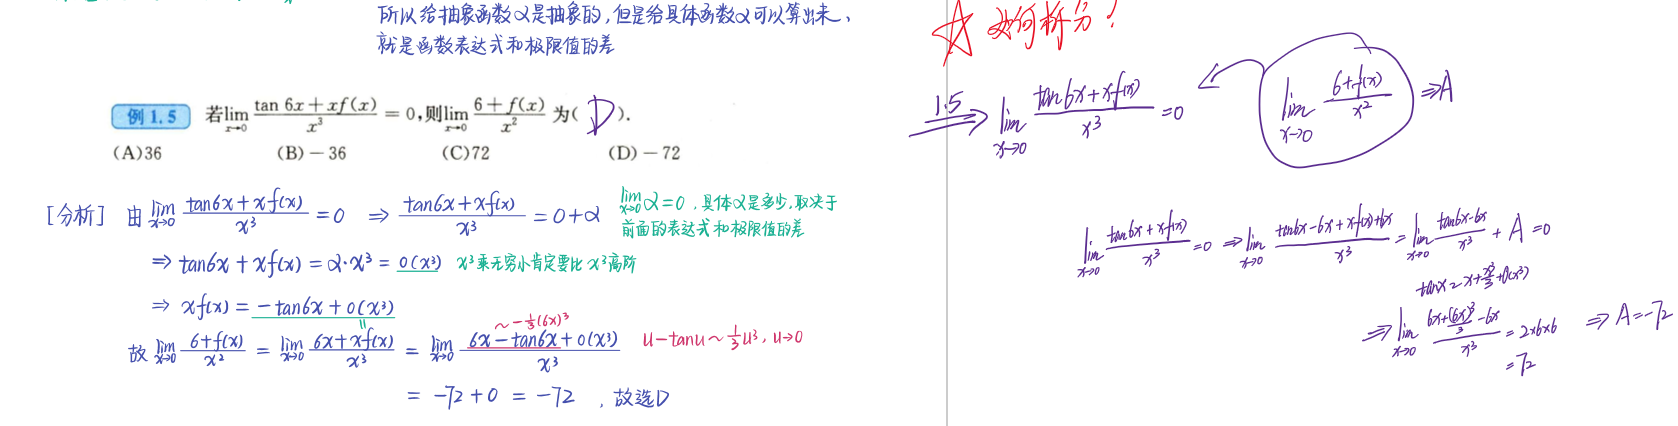 所以给抽象函数α是抽象的,但是给具体函数α可以算出来,
就是函数表达式和极限值的差
例1.5 若lim x→0 (tan 6x+xf(x))/x³ = 0,则lim x→0 (6+f(x))/x² 为( D ).
(A)36 (B)-36 (C)72 (D)-72
[分析] 由 lim x→0 (tan6x+xf(x))/x³ = 0 ⇒ (tan6x+xf(x))/x³ = 0+α
lim x→0 α=0,具体α是多少,取决于
前面的表达式和极限值的差
⇒ tan6x+xf(x) = α·x³ = o(x³) x³乘无穷小肯定要比x³高阶
⇒ xf(x) = -tan6x+o(x³)
故 lim x→0 (6+f(x))/x² = lim x→0 (6x+xf(x))/x³ = lim x→0 (6x-tan6x+o(x³))/x³
~-⅓(6x)³
u-tanu~⅓u³, u→0
= -72+0 = -72 ,故选D
☆ 如何拆分?
1.5 ⇒ lim x→0 (tan6x+xf(x))/x³ =0
lim x→0 (6+f(x))/x² ⇒A
lim x→0 (tan6x+xf(x))/x³ =0 ⇒ lim x→0 (tan6x-6x+xf(x)+6x)/x³ = lim x→0 (tan6x-6x)/x³ + A =0
tanx=x+x³/3+o(x³)
⇒ lim x→0 (6x+(6x)³/3-6x)/x³ = 2×6×6 ⇒ A=-72
=72